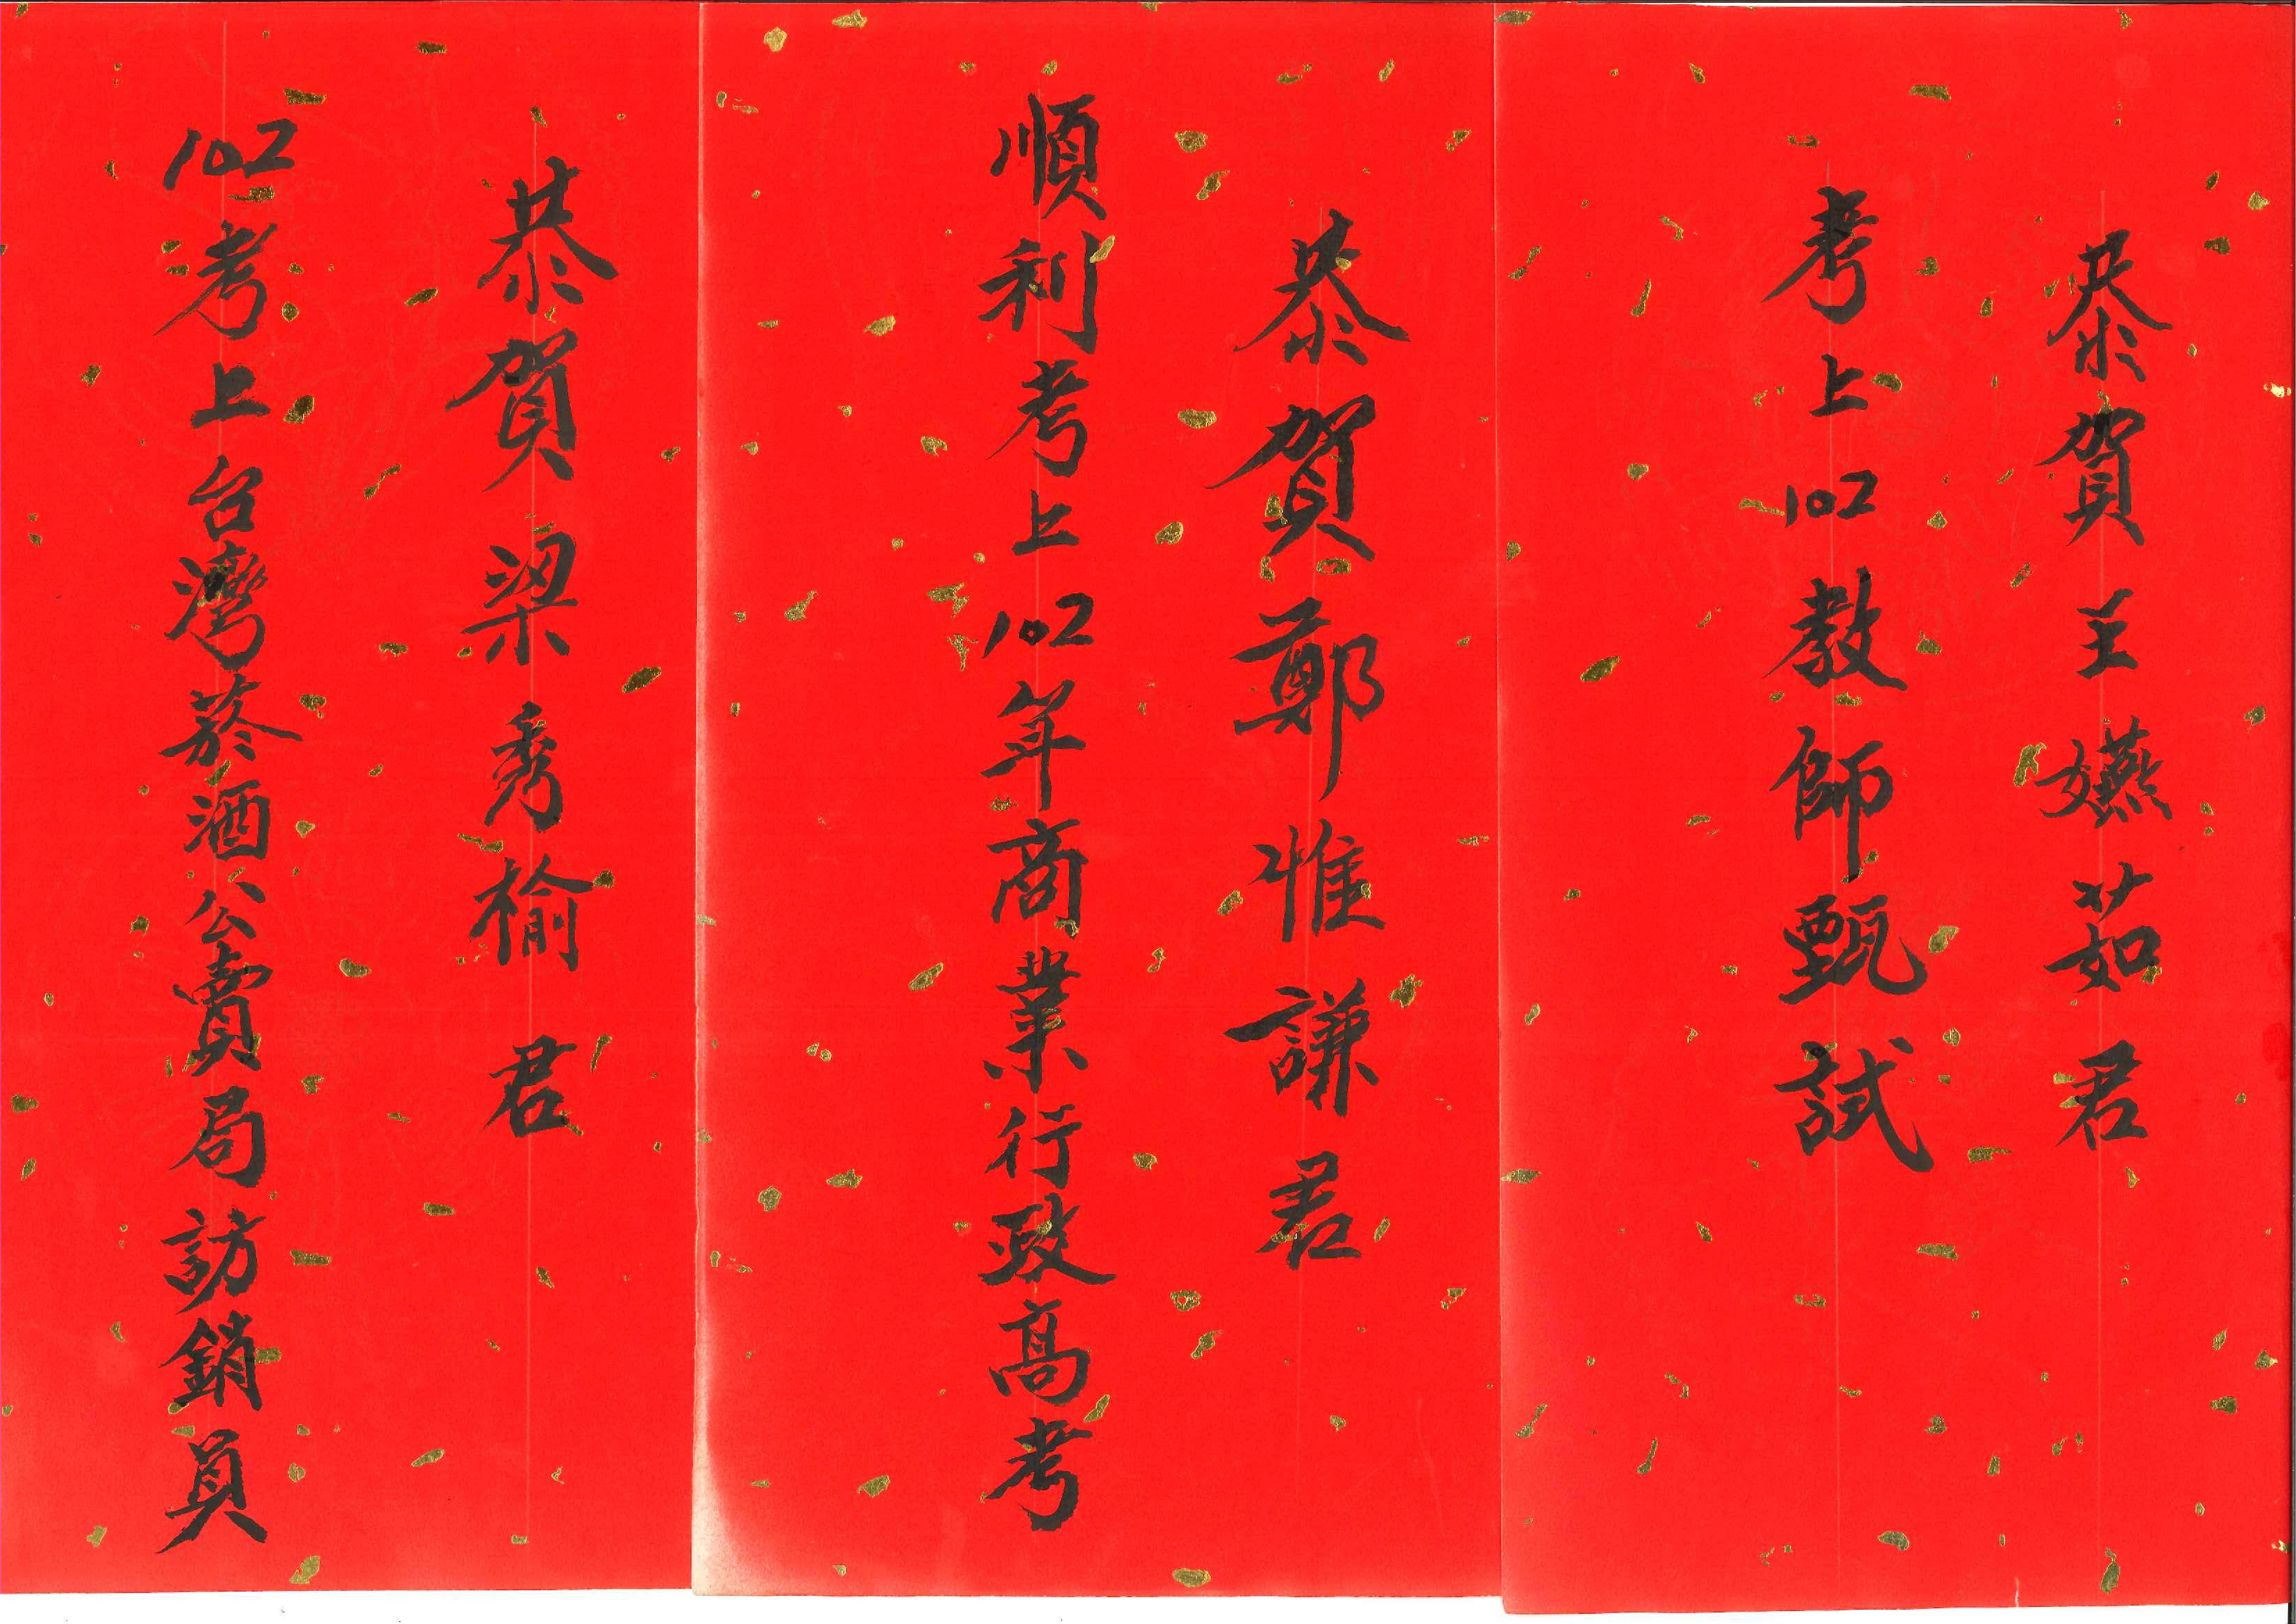 恭賀王嬿茹君
考上102教師甄試
恭賀鄭惟謙君
順利考上102年商業行政高考
恭賀梁秀榆君
102考上台灣菸酒公賣局訪銷員